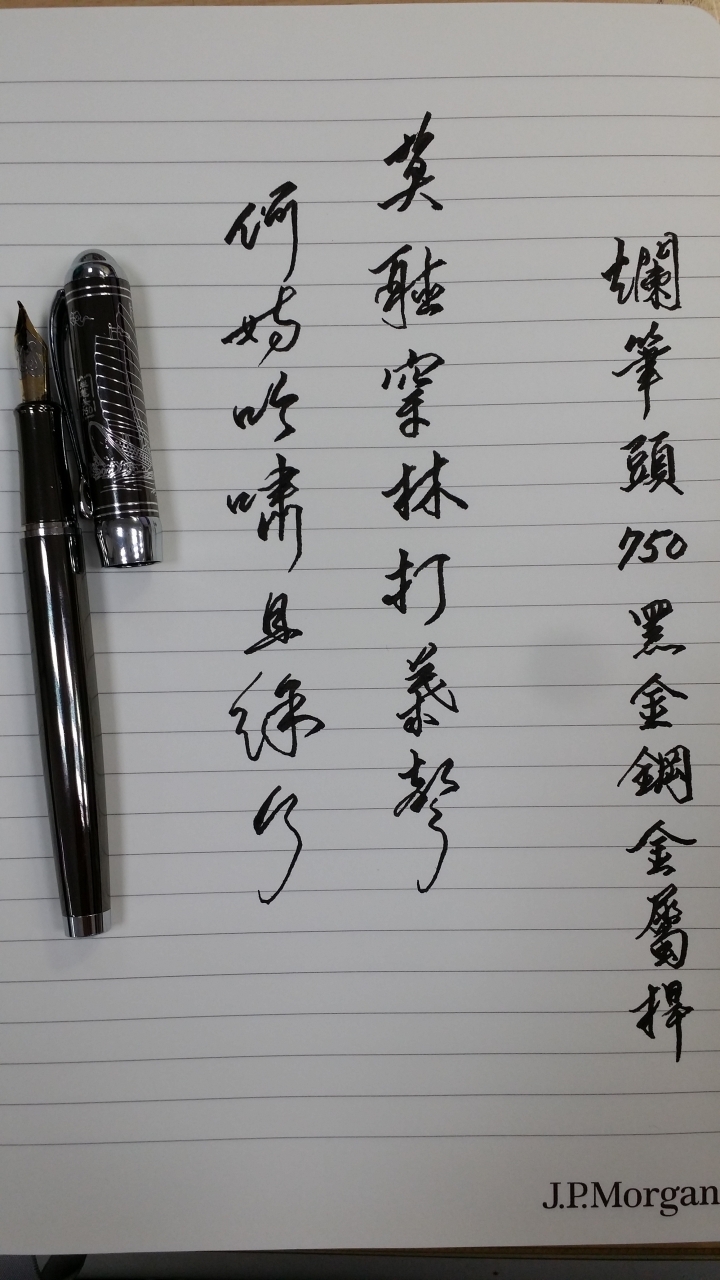 爛筆頭750黑金鋼金屬桿
莫聽穿林打葉聲
何妨吟嘯且徐行
J.P.Morgan